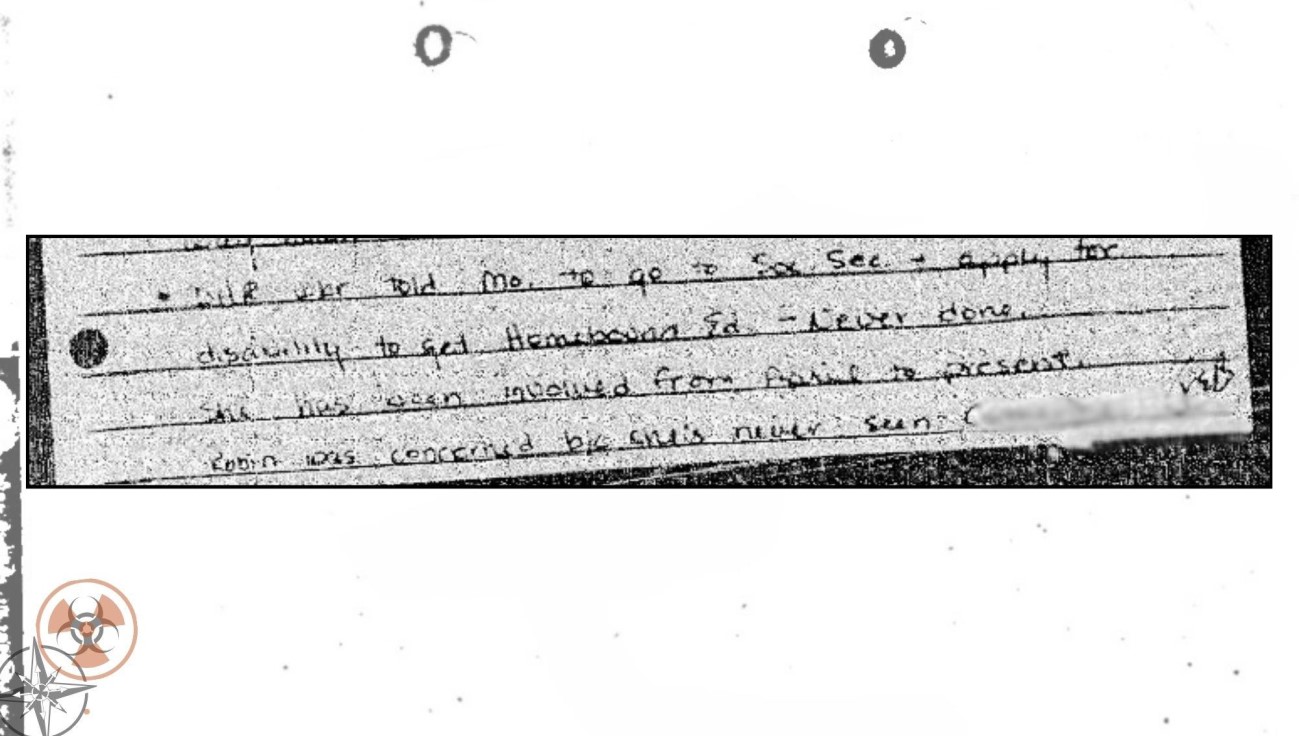 told Mo. to go to Soc. Sec. + apply for
disability to get Homebound Ed. - Never done.
She has been involved from April to present.
Robin was concerned b/c she's never seen